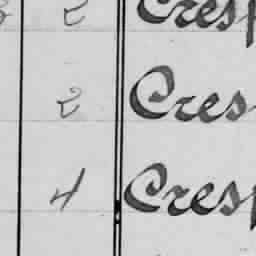 2 Cresp
2 Cres
4 Cresp